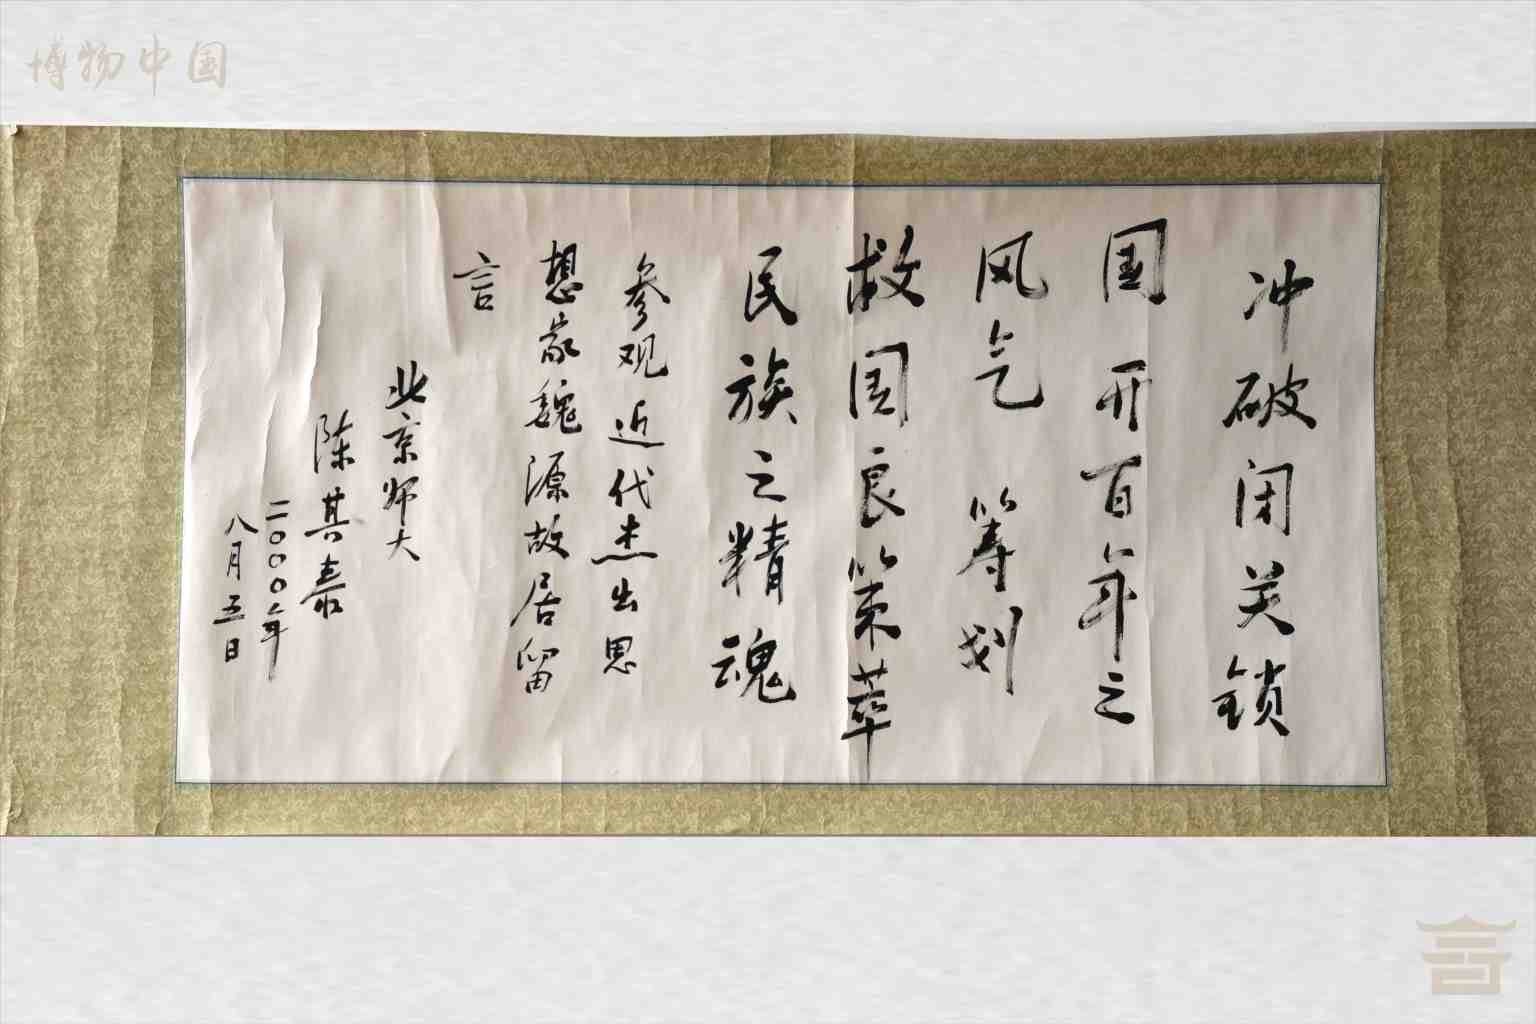 博物中国
冲破闭关锁
国开百年之
风气 筹划
救国良策萃
民族之精魂
参观近代杰出思
想家魏源故居留
言
北京师大
陈其泰
二〇〇〇年
八月五日